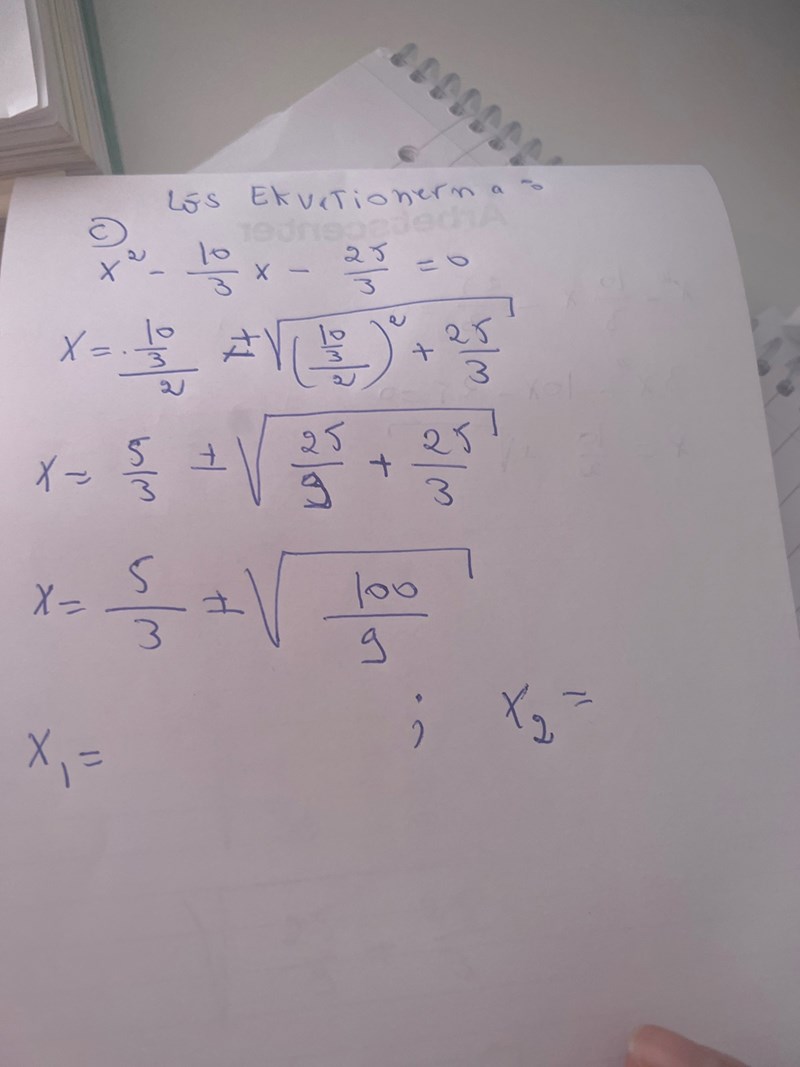 Lös Ekvationerna
c)
x² - 10/3 x - 25/3 = 0
x = (10/3)/2 ± √(((10/3)/2)² + 25/3)
x = 5/3 ± √(25/9 + 25/3)
x = 5/3 ± √(100/9)
x₁ = ; x₂ =